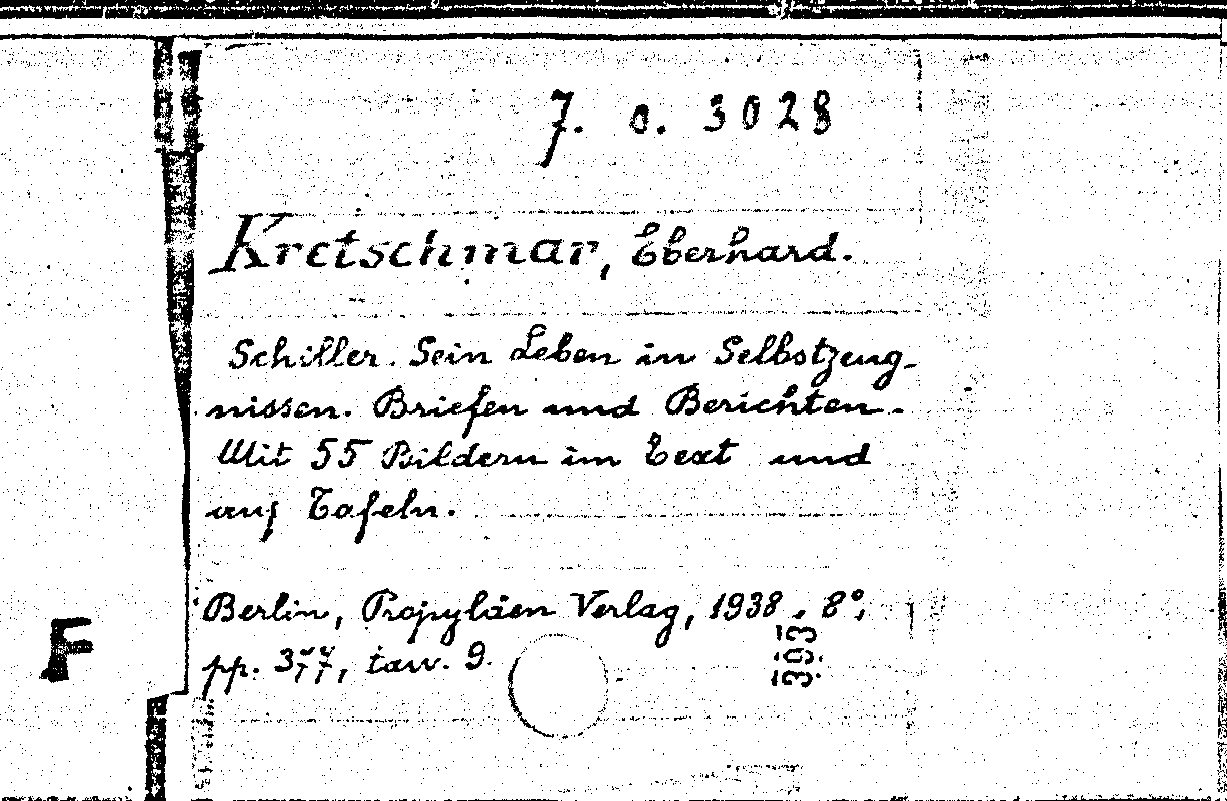 7. o. 3028
Kretschmar, Eberhard.
Schiller. Sein Leben in Selbstzeug-
nissen. Briefen und Berichten.
Mit 55 Bildern im Text und
auf Tafeln.
Berlin, Propyläen Verlag, 1938. 8°,
pp. 377, tavv. 9.
393
F